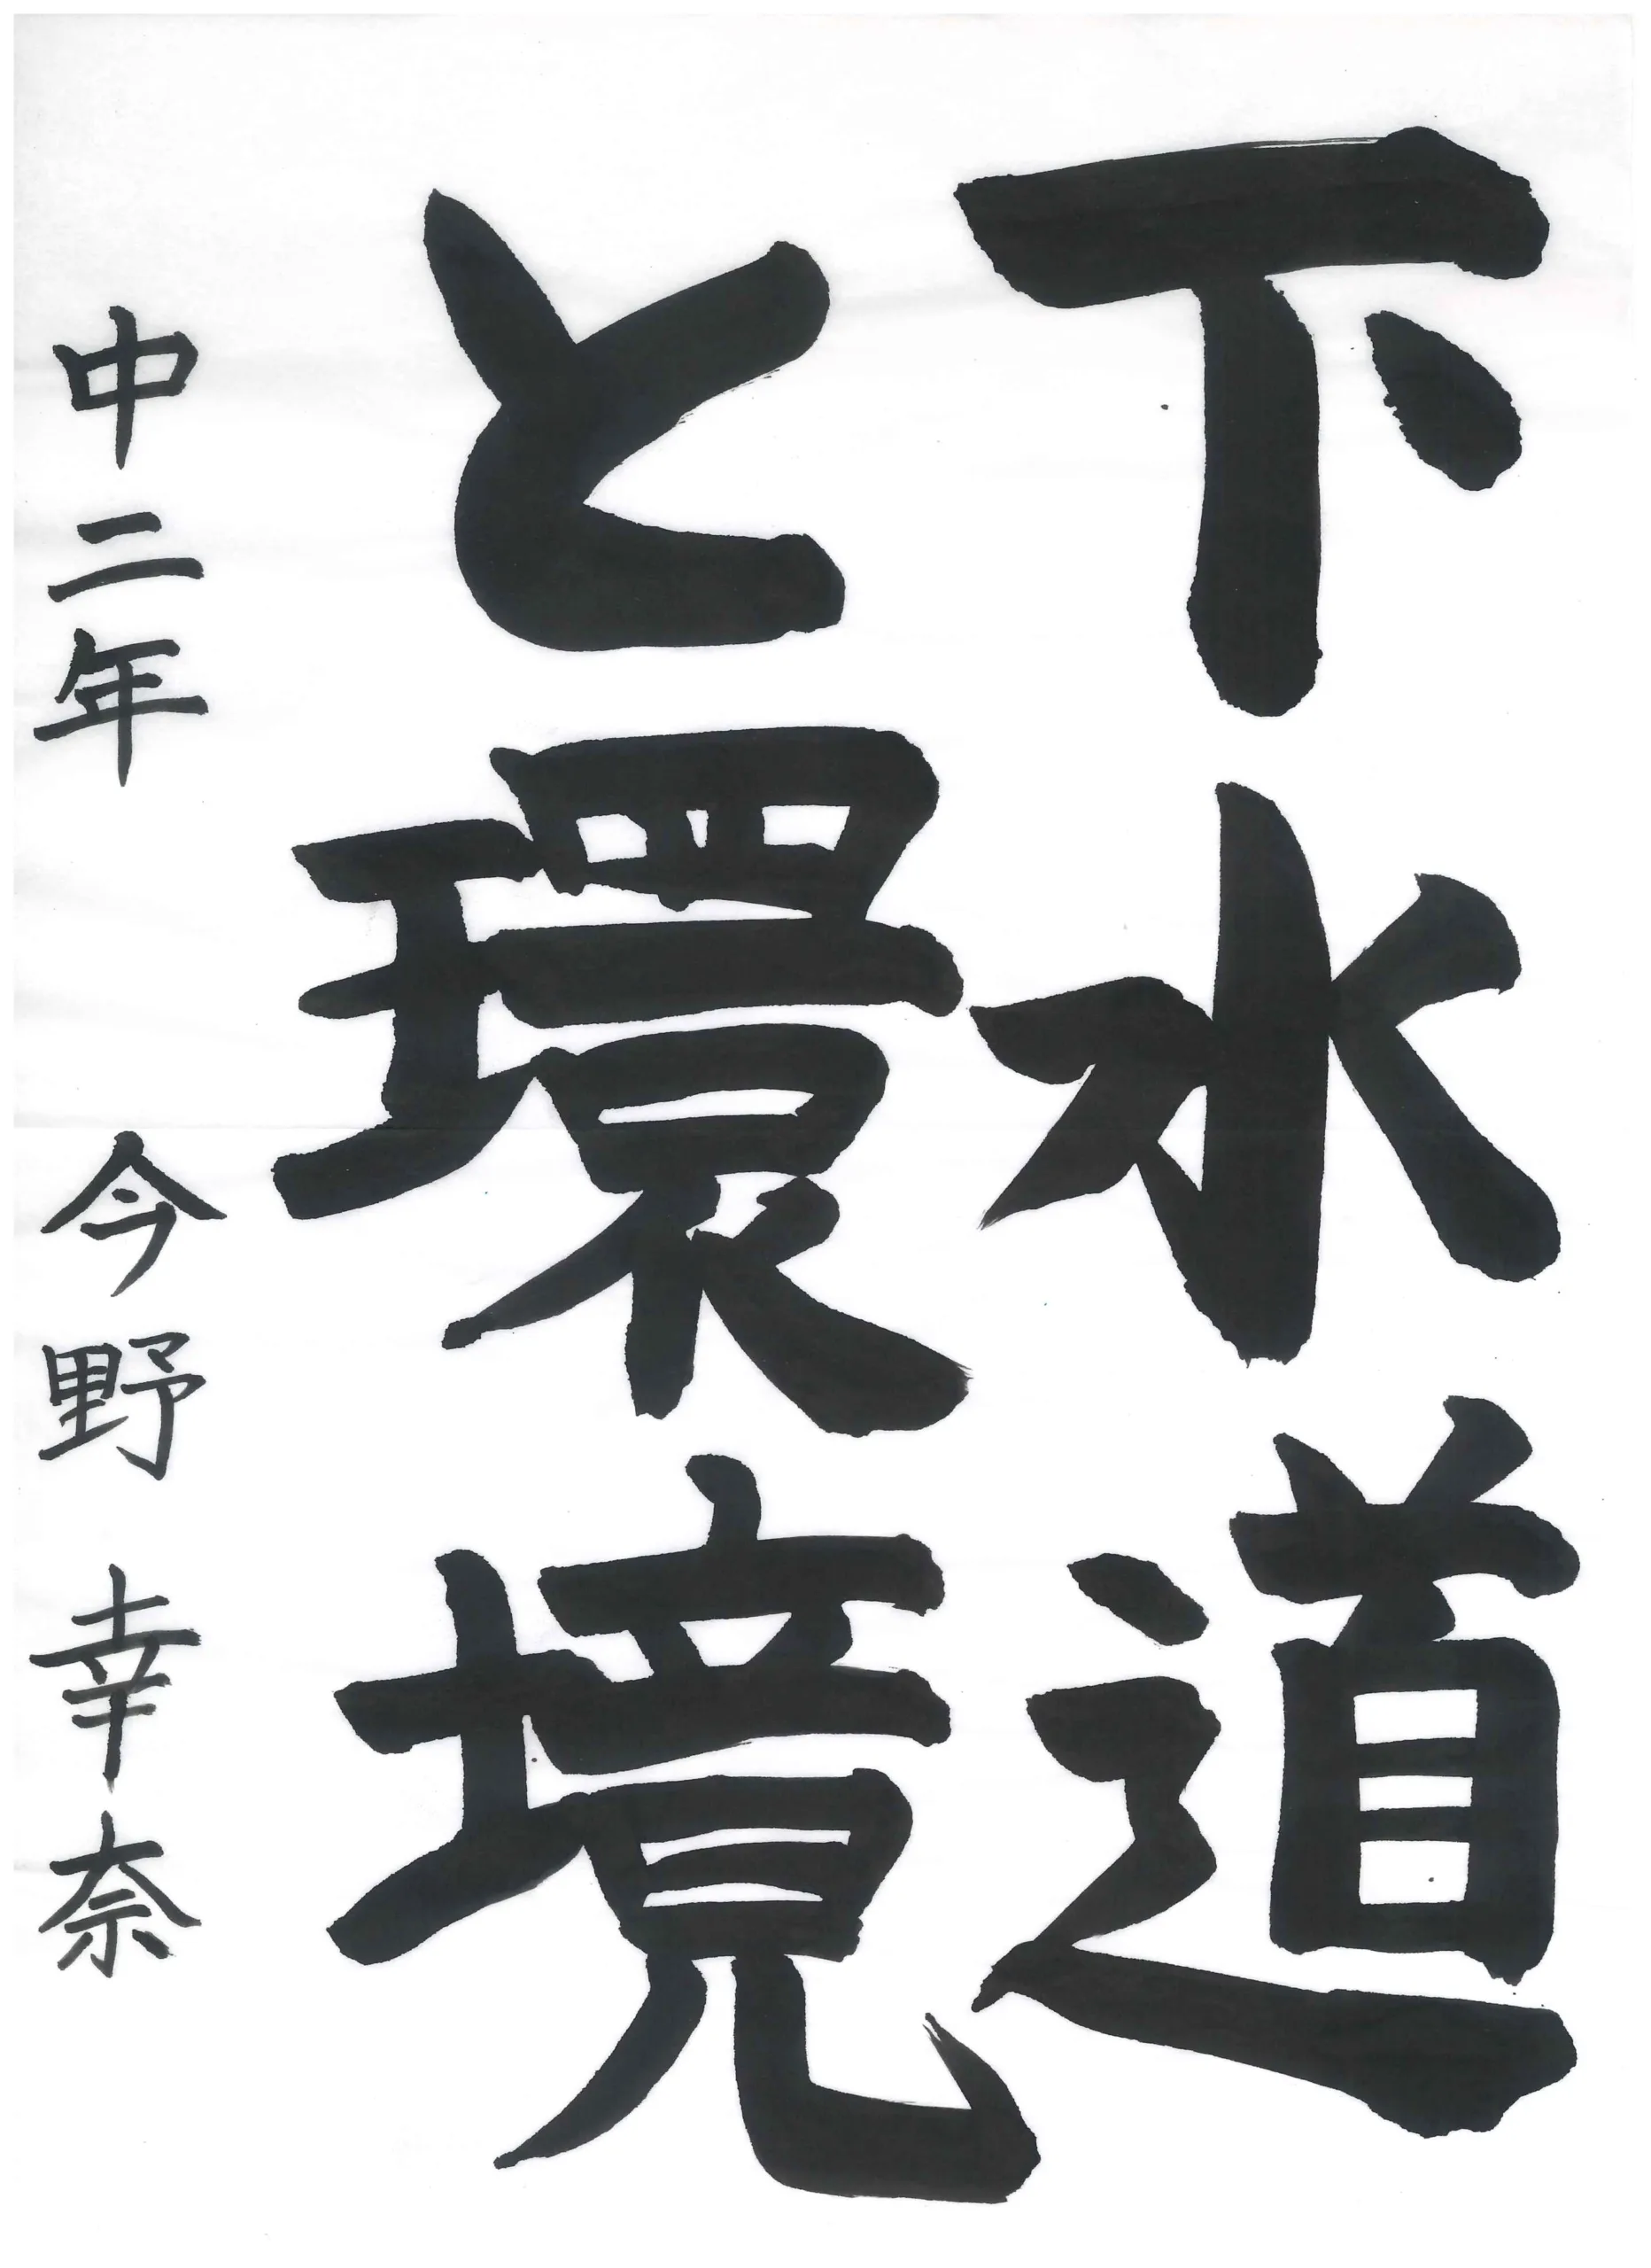 下水道
と環境
中二年 今野 幸奈